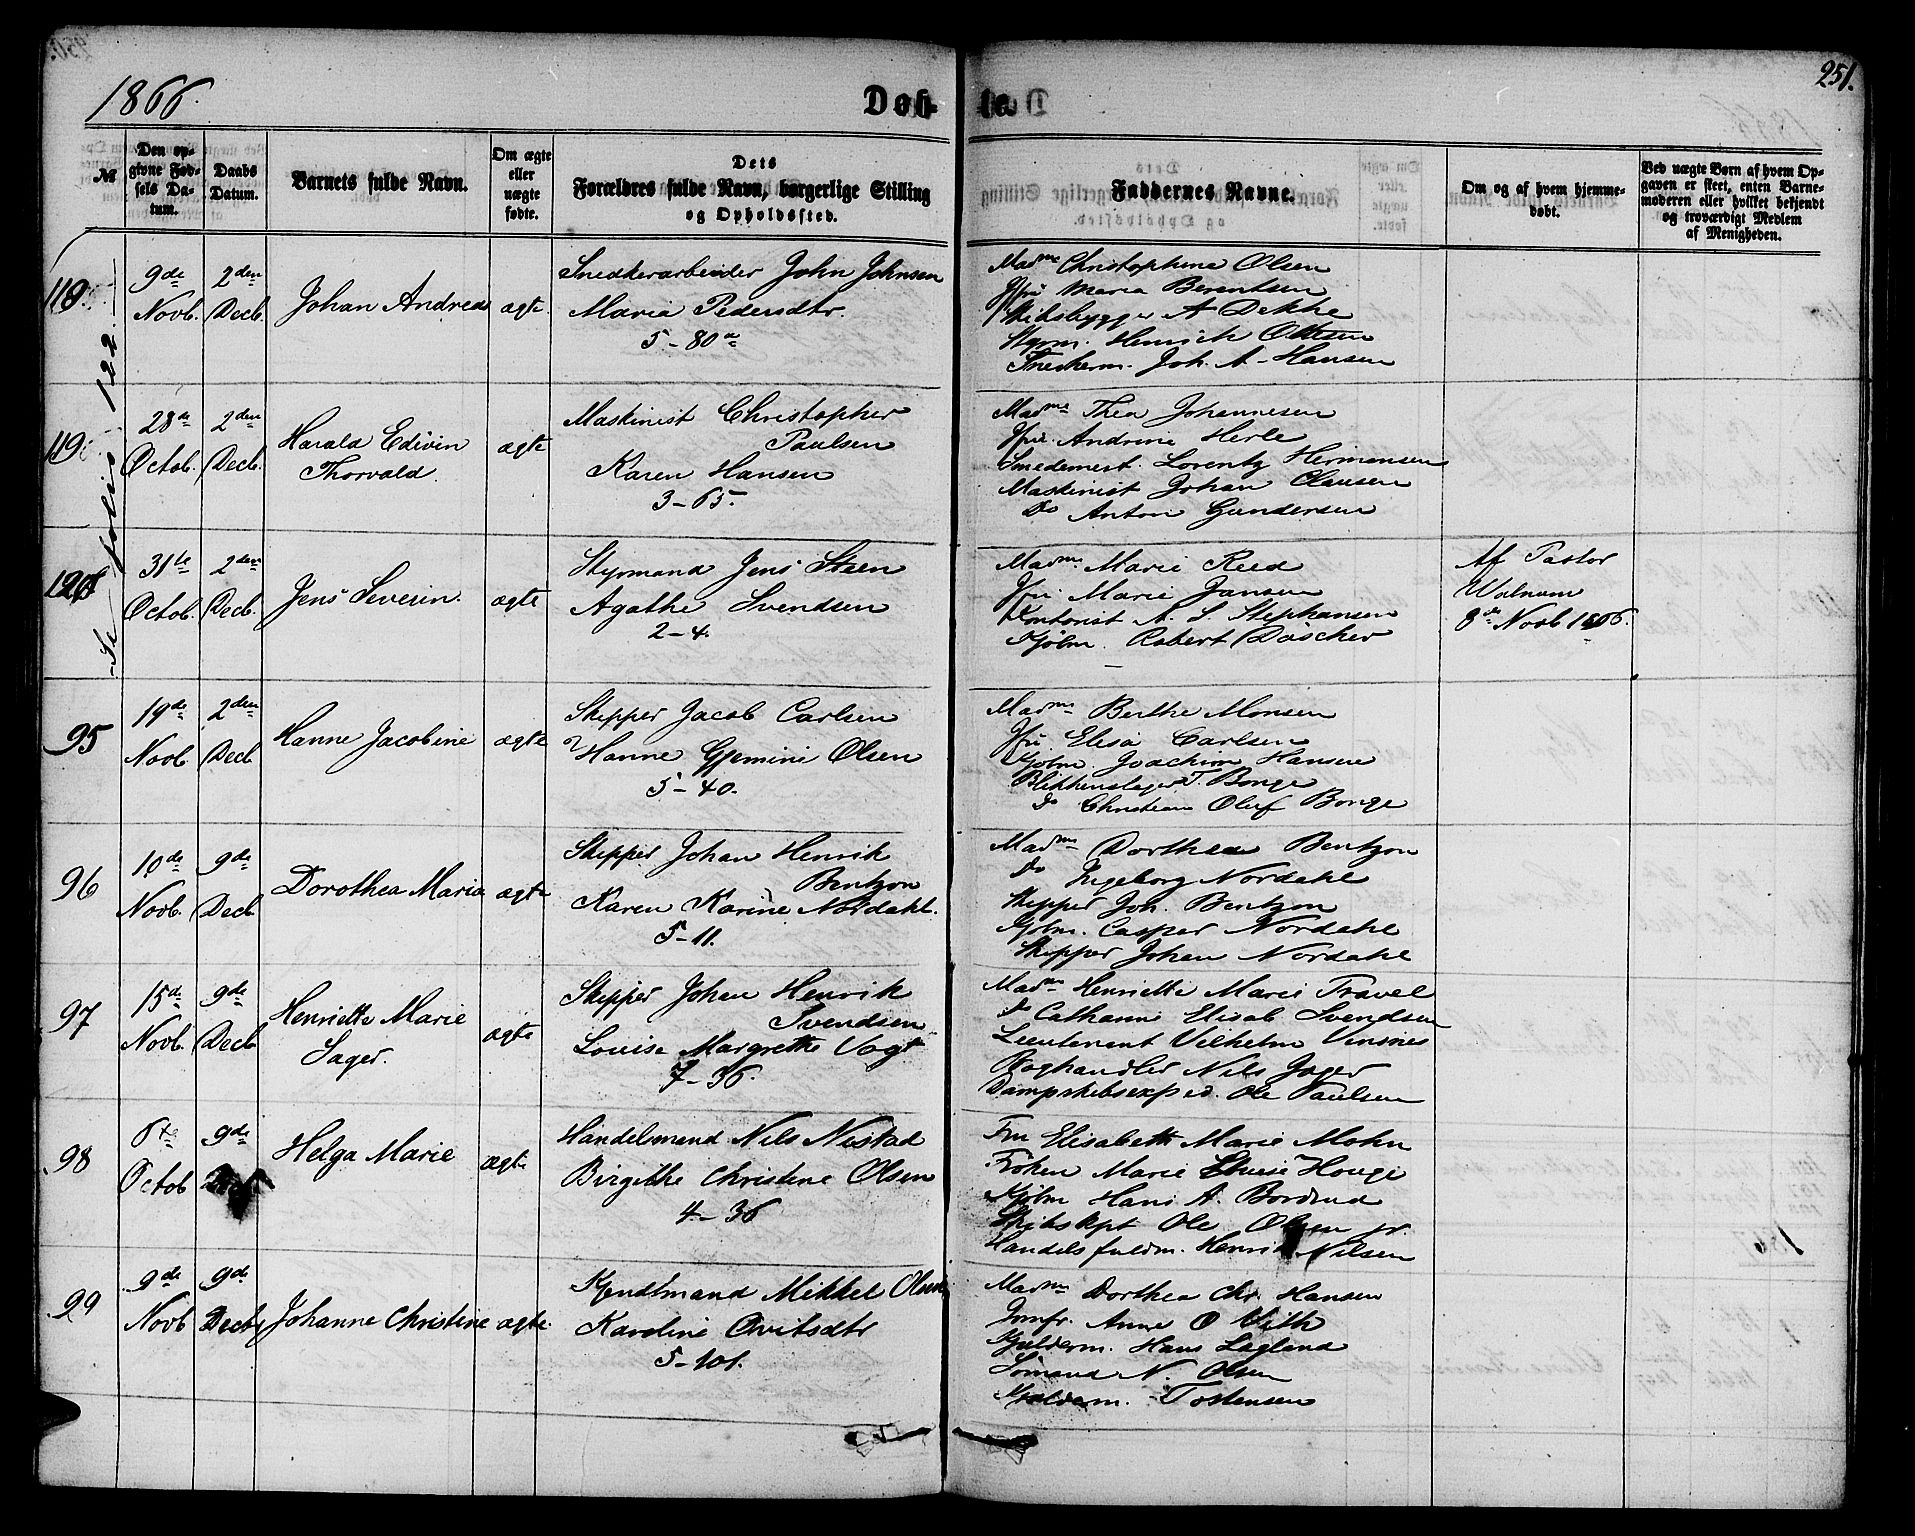 1866.
Døb-
te.
251.
№
Den op-
givne Fød-
sels Da-
tum.
Daabs
Datum.
Barnets fulde Navn.
Om ægte
eller
uægte
fødte.
Dets
Forældres fulde Navn, borgerlige Stilling
og Opholdssted.
Faddernes Navne.
Om og af hvem hjemme-
døbt.
Ved uægte Børn af hvem Op-
gaven er skeet, enten Barne-
moderen eller hvilket bekjendt
og troværdigt Medlem
af Menigheden.
Se folio 122.
118.
9de
Novb.
2den
Decb.
Johan Andreas
ægte.
Snedkerarbeider John Johnsen
Maria Pedersdtr.
5-80
Madme Christophine Olsen
Jfru Maria Berentsen
Skibsbygger A Dekke
Styrm. Henrick Olsen
Snedkerm. Joh. A. Hansen
119.
28de
Octob.
2den
Decb.
Harald Edivin
Thorvald.
ægte
Maskinist Christopher
Paulsen
Karen Hansen
3-65.
Madme Thea Johannesen
Jfru. Andrine Herle
Smedemest. Lorentz Hermansen
Maskinist Johan Clausen
Do Anton Gundersen
120
31te
Octob.
2den
Decb.
Jens Severin.
ægte
Styrmand Jens Steen
Agathe Svendsen
2-4.
Madme Marie Reed
Jfru. Marie Jansen
Contorist A. S. Stephansen
Kjøbm. Robert Dascher
Af Pastor
Walnum
8de Novb 1866.
95
19de
Novb
2den
Decb
Hanne Jacobine
ægte
Skipper Jacob Carlsen
Hanne Gjemine Olsen
5-40.
Madme Berthe Monsen
Jfru. Elisa Carlsen
Kjøbm. Joachim Hansen
Blikkenslager T. Bonge
Do Christian Oluf Bonge
96
10de
Novb.
9de
Decb
Dorothea Maria
ægte
Skipper Johan Henrik
Bentzon
Karen Karine Nordahl.
5-11.
Madme Dorthea Bentzon
Do Ingeborg Nordahl
Skipper Joh. Bentzon
Kjøbm. Casper Nordahl
Skipper Johan Nordahl
97
15de
Novb.
9de
Decb
Henriette Marie
Sager.
ægte
Skipper Johan Henrik
Svendsen
Louise Margrethe Vogt
7-36.
Madme Henriette Marie Travel
Do Cathrine Elisab Svendsen
Lieutenant Vilhelm Vinsnes
Boghandler Nils Jager
Dampskibsexped. Ole Paulsen
98
6te
Octob
9de
Helga Marie
ægte
Handelsmand Nils Nestad
Birgithe Christine Olsen
4-36
Fru Elisabeth Marie Mohn
Frøken Marie Louise Houge
Kjøbm Hans A. Bordend
Skibskpt Ole Olsen jr.
Handelsfuldm. Henrik Nilsen
99
9de
Novb
9de
Decbr
Johanne Christine
ægte.
Kjendtmand Mikkel Olsen
Karoline Ovitsdtr
5-101.
Madme Dorthea Chr. Hansen
Jomfr. Anne O Vith
Gulderm. Hans Lagland
Sømand N. Olsen
Gulderm. Tostensen